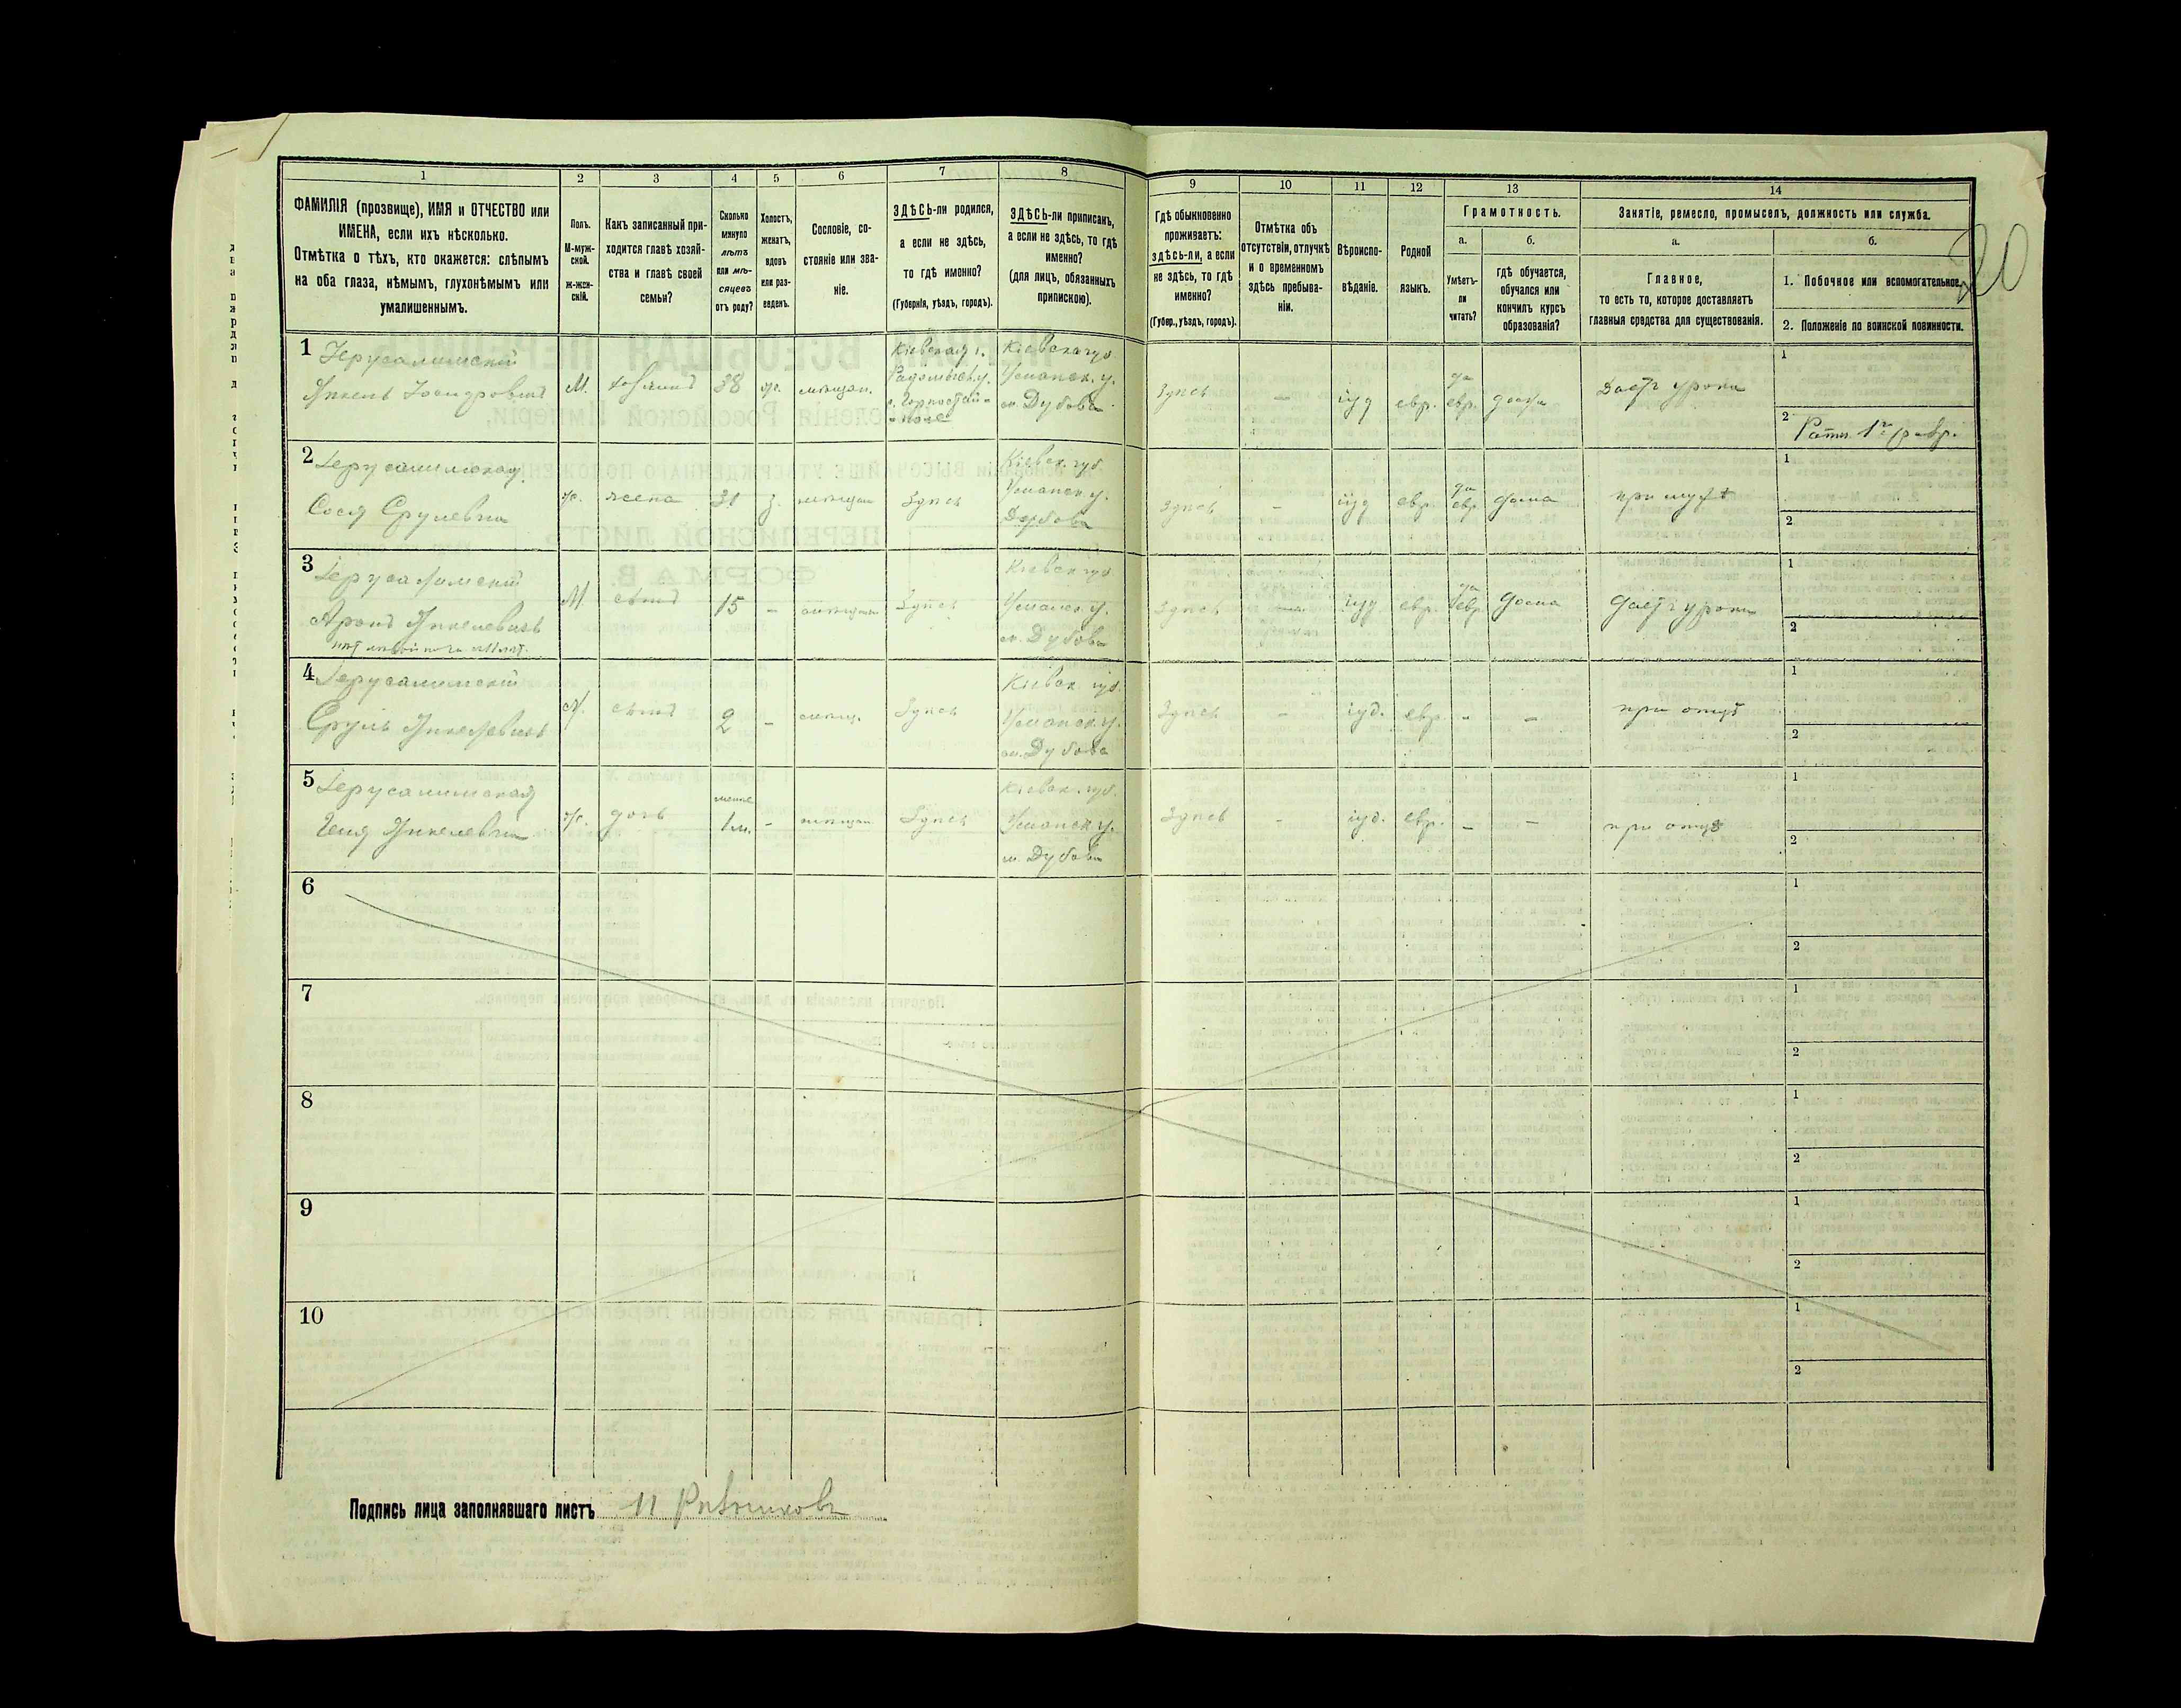 1
2
3
4
5
6
7
8
9
10
11
12
13
14
ФАМИЛІЯ (прозвище), ИМЯ и ОТЧЕСТВО или
ИМЕНА, если ихъ нѣсколько.
Отмѣтка о тѣхъ, кто окажется: слѣпымъ
на оба глаза, нѣмымъ, глухонѣмымъ или
умалишеннымъ.
Полъ.
М-муж-
ской.
Ж-жен-
скій.
Какъ записанный при-
ходится главѣ хозяй-
ства и главѣ своей
семьи?
Сколько
минуло
лѣтъ
или мѣ-
сяцевъ
отъ роду?
Холостъ,
женатъ,
вдовъ
или раз-
веденъ.
Сословіе, со-
стояніе или зва-
ніе.
ЗДѢСЬ-ли родился,
а если не здѣсь,
то гдѣ именно?
(Губернія, уѣздъ, городъ).
ЗДѢСЬ-ли приписанъ,
а если не здѣсь, то гдѣ
именно?
(для лицъ, обязанныхъ
припискою).
Гдѣ обыкновенно
проживаетъ:
здѣсь-ли, а если
не здѣсь, то гдѣ
именно?
(Губер., уѣздъ, городъ).
Отмѣтка объ
отсутствіи, отлучкѣ
и о временномъ
здѣсь пребыва-
ніи.
Вѣроиспо-
вѣданіе.
Родной
языкъ.
Грамотность.
а.
Умѣетъ-
ли
читать?
б.
гдѣ обучается,
обучался или
кончилъ курсъ
образованія?
Занятіе, ремесло, промыселъ, должность или служба.
а.
Главное,
то есть то, которое доставляетъ
главныя средства для существованія.
б.
1. Побочное или вспомогательное.
2. Положеніе по воинской повинности.
20
1 Іерусалимскій
Янкель
М. хозяинъ 38 ж. мѣщан.
Кіевская г.
Радомысл. у.
с. Горностай-
поле
Кіевск губ
Уманск. у.
м. Дубова
Здѣсь - іуд евр.
да
евр. дома
Даетъ уроки
1
2 Ратн. 1го разр.
2 Іерусалимская
Сося Срулевна
ж. жена 31 з. мѣщан Здѣсь
Кіевск. губ.
Уманск у.
Дубова
здѣсь - іуд евр.
да
евр. дома
при мужѣ
1
2
3 Іерусалимскій
Аронъ Янкелевичъ
М. сынъ 15 - мѣщан Здѣсь
Кіевск губ
Уманск. у.
м. Дубова
здѣсь - іуд евр.
да
евр. дома
даетъ уроки
1
2
4 Іерусалимскій
Сруль Янкелевичъ
М. сынъ 2 - мѣщ. Здѣсь
Кіевск. губ.
Уманск. у.
м. Дубова
Здѣсь - іуд. евр. - -
при отцѣ
1
2
5 Іерусалимская
Геня Янкелевна
ж. дочь
менѣе
1 м. - мѣщан Здѣсь
Кіевск. губ.
Уманск у.
м. Дубова
Здѣсь - іуд. евр. - -
при отцѣ
1
2
6
1
2
7
1
2
8
1
2
9
1
2
10
1
2
Подпись лица заполнявшаго листъ